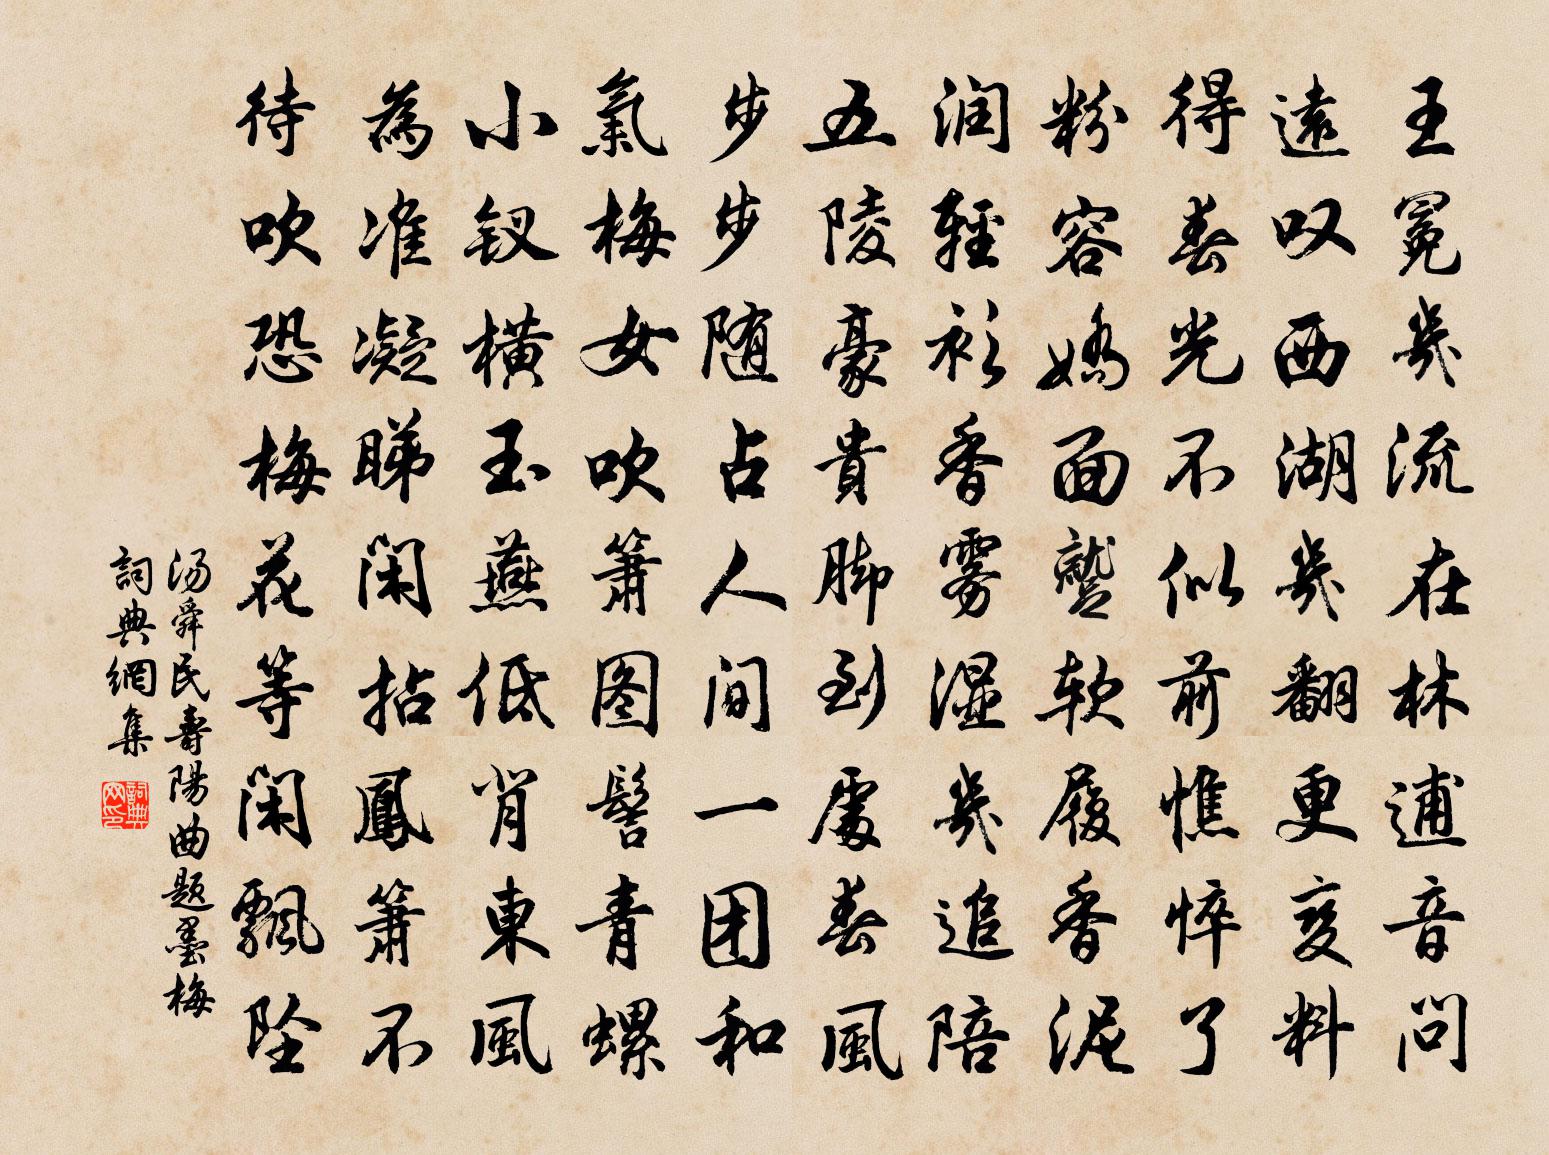 王冕幾流在林逋音問
遠叹西湖幾翻更变料
得春光不似前憔悴了
粉容嬌面鬢软履香泥
润輕衫香雾湿幾追陪
五陵豪貴脚到處春風
步步随占人间一团和
氣梅女吹箫图髻青螺
小钗橫玉燕低肖東風
為准凝睇闲拈鳳箫不
待吹恐梅花等闲飄墜
汤舜民壽陽曲题墨梅
詞典網集